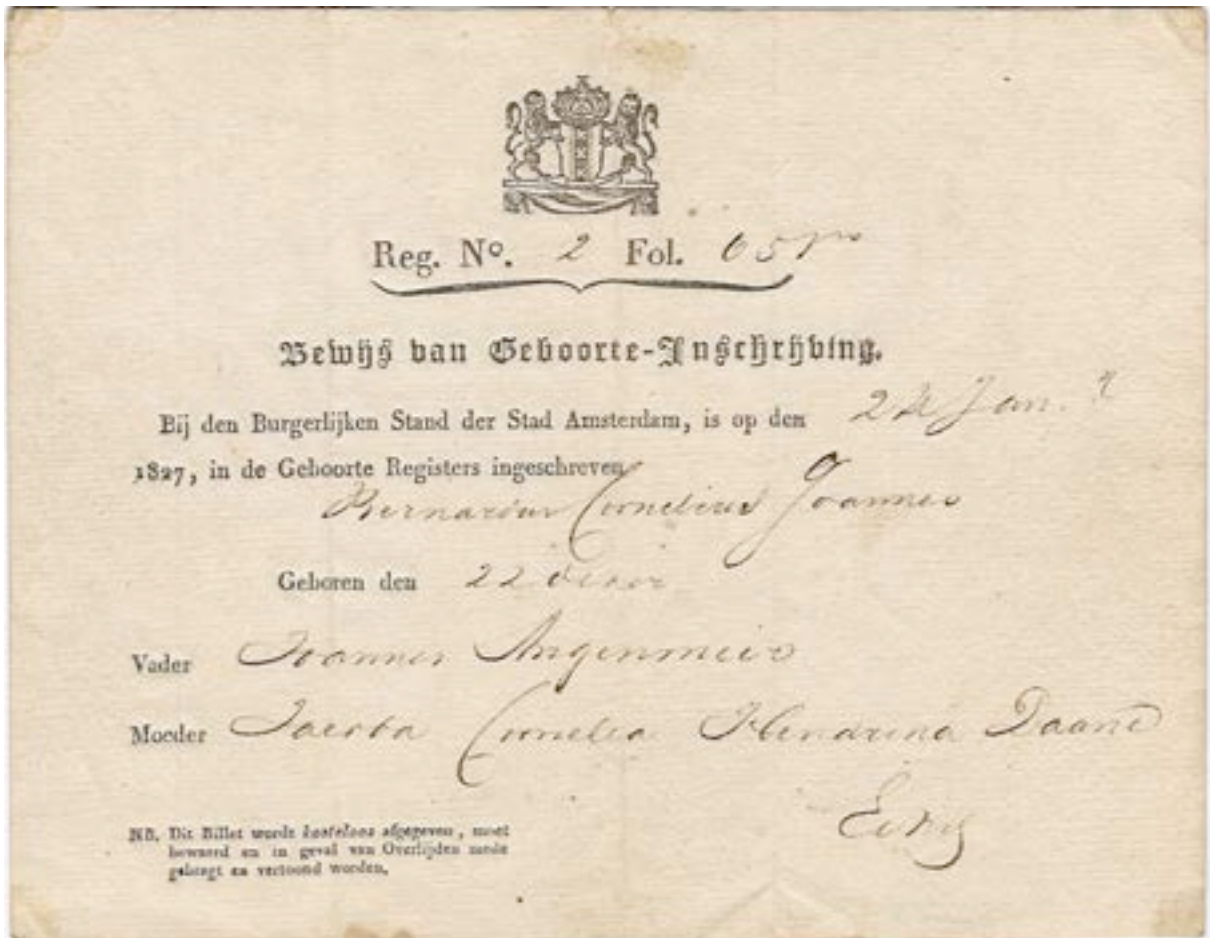 Reg. No. 2 Fol. 65
Bewijs van Geboorte-Inschrijving.
Bij den Burgerlijken Stand der Stad Amsterdam, is op den 24 Jan.
1827, in de Geboorte Registers ingeschreven
Bernardus Cornelius Joannes
Geboren den 22
Vader Joannes Angenmeir
Moeder Jacoba Cornelia Hendrina Daane
NB. Dit Billet wordt kosteloos afgegeven, moet
bewaard en in geval van Overlijden mede
gebragt en vertoond worden.